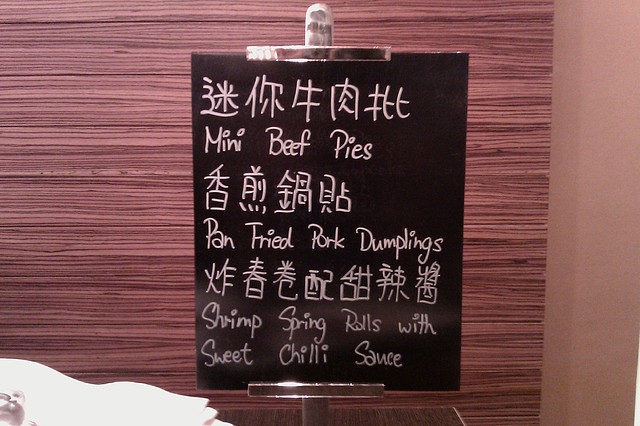 迷你牛肉批
Mini Beef Pies
香煎鍋貼
Pan Fried Pork Dumplings
炸春卷配甜辣醬
Shrimp Spring Rolls with
Sweet Chilli Sauce